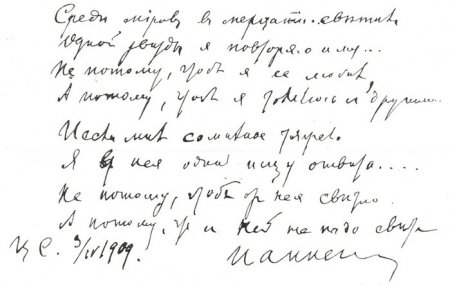 Среди міров в мерцаніи светил
Одной звезды я повторяю имя...
Не потому, чтоб я ее любил,
А потому, что я томлюсь с другими.
И если мне сомненье тяжело
Я у нея одной ищу ответа.....
Не потому, чтоб от нея светло
А потому, что с ней не надо света
Ц С. 3/IV 1909.